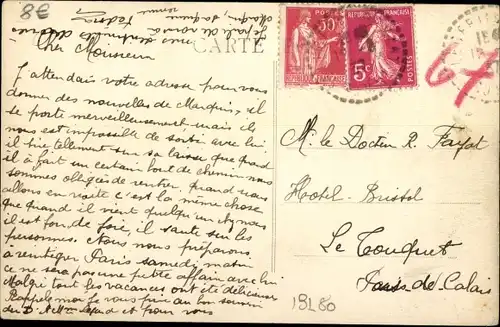 8€
CARTE
Cher Monsieur
J'attendais votre adresse pour vous
donner des nouvelles de Marquis, il
se porte merveilleusement mais il
nous est impossible de sortir avec lui
il tire tellement sur sa laisse que quand
il a fait un certain bout de chemin nous
sommes obligés de rentrer, quand nous
allons en visite c'est la même chose
que quand il vient quelqu'un
il est fou de joie, il saute sur les
personnes. Nous nous préparons
à réintégrer Paris samedi matin
ce ne sera pas une petite affaire avec lui
Malgré tout les vacances ont été délicieuses
Rappelez moi je vous prie au bon souvenir
du D. et Mme et pour vous
50
POSTES
FRANÇAISE
5c
M. le Docteur R. Fayat
Hotel Bristol
Le Touquet
Pas de Calais
13L80